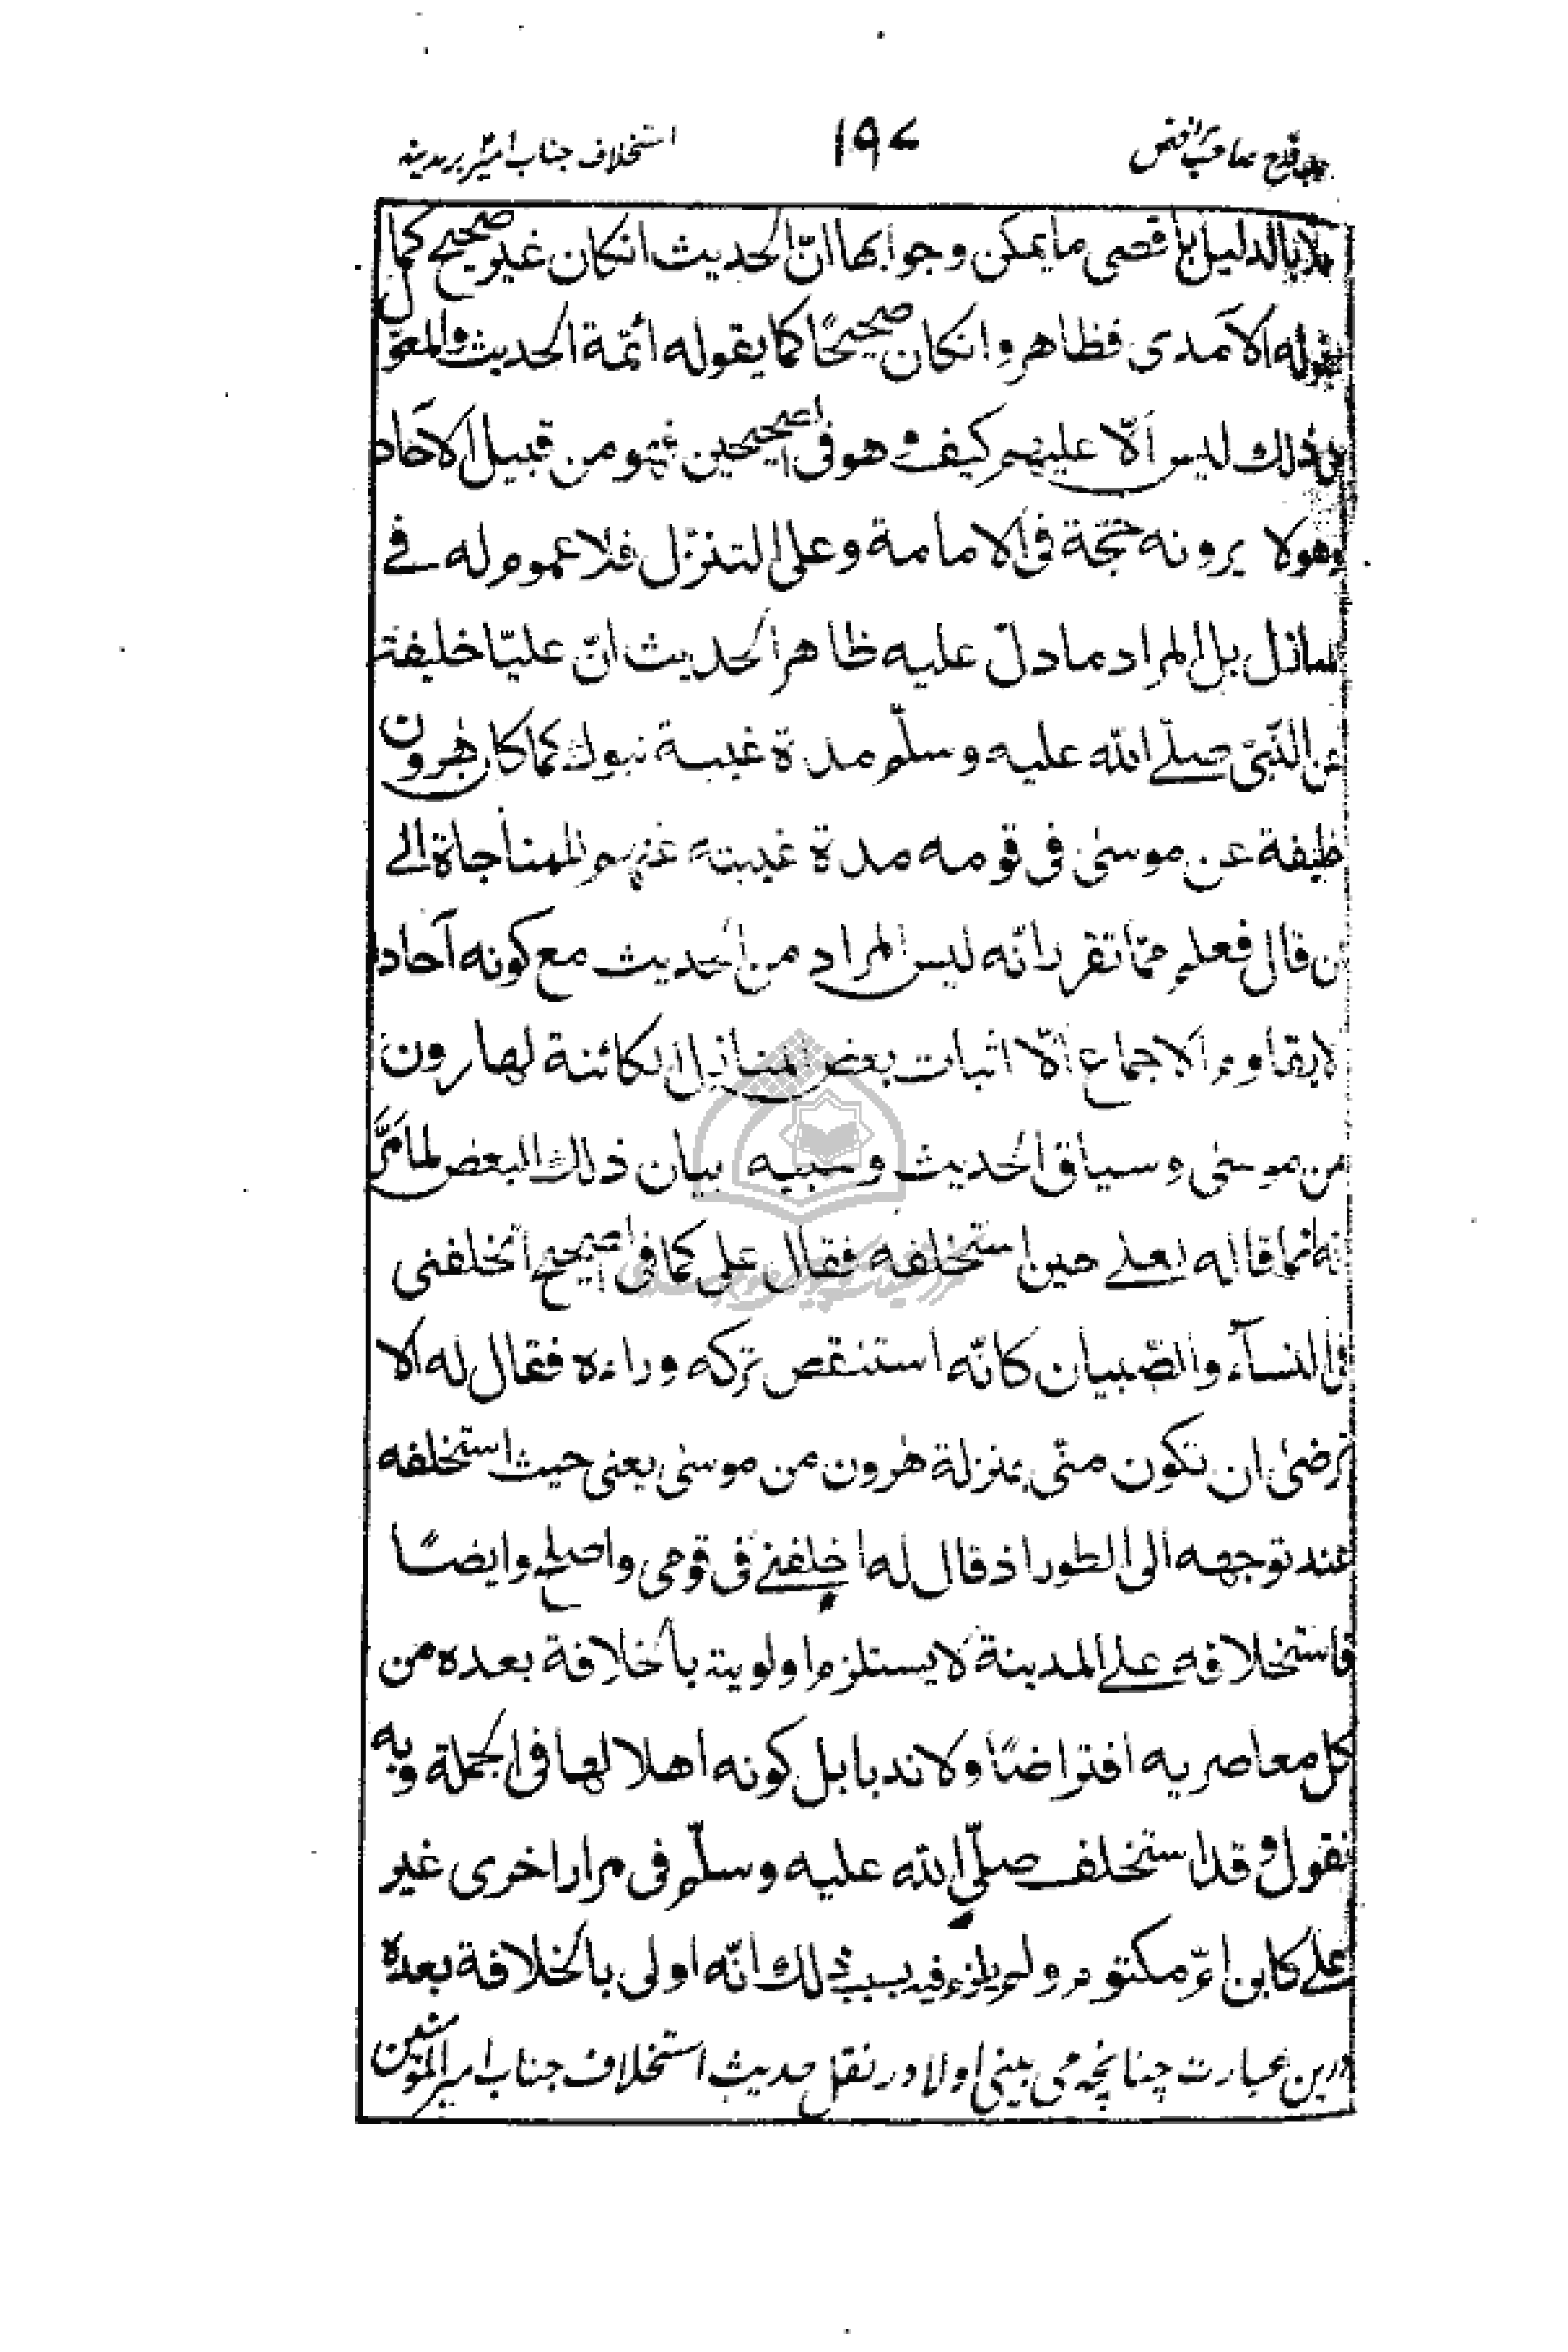 صاحب نواقض ١٩٧ استخلاف جناب امیر بر مدینه
بالدليل بأقصى ما يمكن وجوابها انّ الحديث انكان غير صحيح كما
يقوله الآمدى فظاهر وانكان صحيحًا كما يقوله أئمّة الحديث والمعوّل
فى ذلك ليس الّا عليهم كيف وهو فى الصحيحين فهو من قبيل الآحاد
وهو لا يرونه حجّة فى الامامة وعلى التنزّل فلا عموم له فے
المنازل بل المراد ما دلّ عليه ظاهر الحديث انّ عليّا خليفة
عن النّبىّ صلّے الله عليه وسلّم مدة غيبة تبوك كما كان هٰرون
خليفة عن موسىٰ فى قومه مدة غيبته عنهم للمناجاة الے
ان قال فعلم ممّا تقرر انّه ليس المراد من الحديث مع كونه آحادا
لا يقاوم الاجماع الّا اثبات بعض المنازل الكائنة لهارون
من موسىٰ وسياق الحديث وسببه بيان ذلك البعض لما مَرَّ
انه انما قاله لعلے حين استخلفه فقال على كما فى الصحيح أتخلفنى
فى النسآء والصّبيان كانّه استنقص تركه وراءه فقال له الا
ترضىٰ ان تكون منّى بمنزلة هٰرون من موسىٰ يعنى حيث استخلفه
عند توجهه الى الطور اذ قال له اخلفنے فى قومى واصلح وايضًا
فاستخلافه علے المدينة لا يستلزم اولويته بالخلافة بعده من
كل معاصريه افتراضًا ولا ندبا بل كونه اهلا لها فى الجملة وبه
نقول وقد استخلف صلّى الله عليه وسلّم فى مرار اخرى غير
علے كابن امّ مكتوم ولم يلزم فيه بسبب ذلك انّه اولى بالخلافة بعده
درین عبارت چنانچه می بینی اولا در نقل حدیث استخلاف جناب امیر المؤمنین